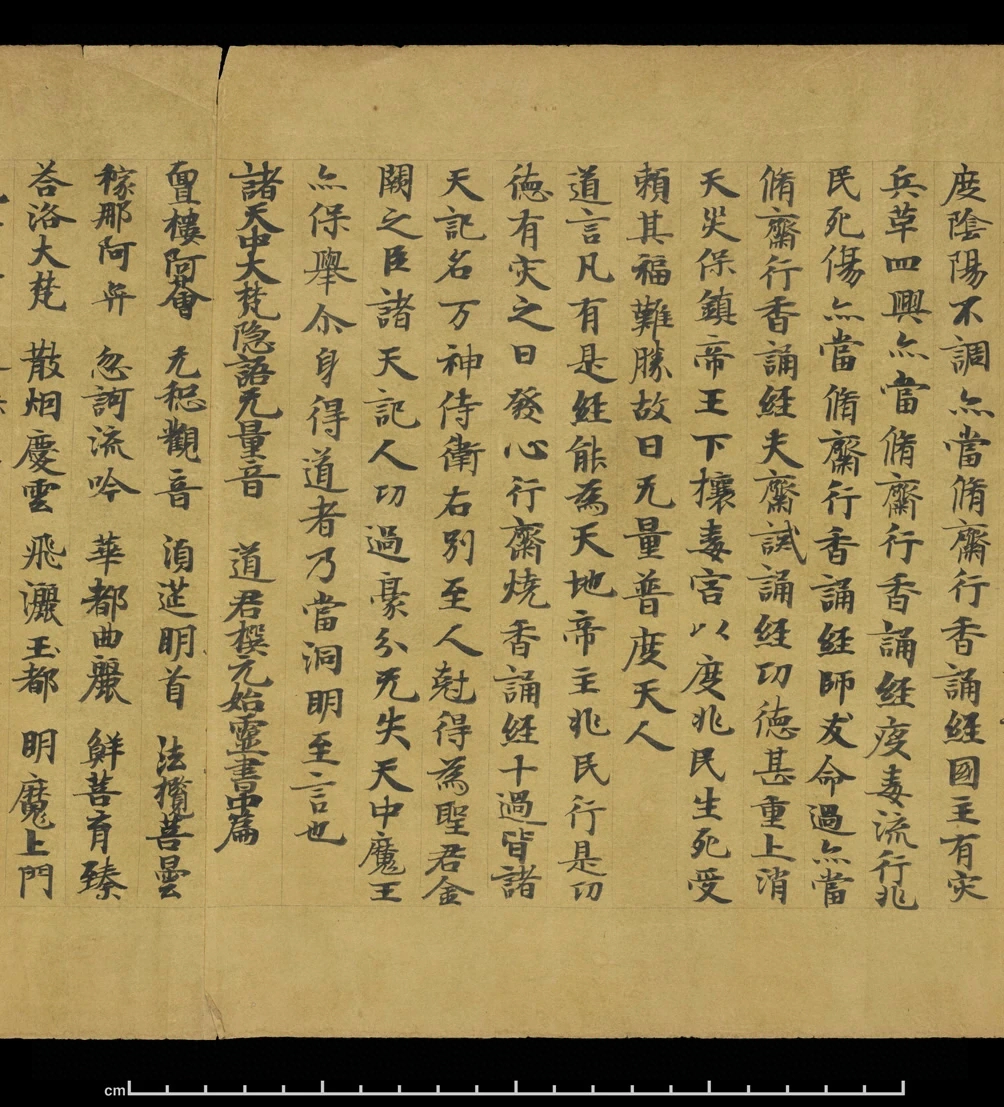 度陰陽不調亦當脩齋行香誦經國主有灾
兵革四興亦當脩齋行香誦經疫毒流行兆
民死傷亦當脩齋行香誦經師友命過亦當
脩齋行香誦經夫齋試誦經功德甚重上消
天灾保鎮帝王下攘毒害以度兆民生死受
賴其福難勝故曰无量普度天人
道言凡有是經能為天地帝主兆民行是功
德有灾之日發心行齋燒香誦經十過皆諸
天記名万神侍衛右別至人尅得為聖君金
闕之臣諸天記人功過豪分无失天中魔王
亦保舉尒身得道者乃當洞明至言也
諸天中大梵隐語无量音 道君撰元始靈書中篇
亶樓阿薈 无惒觀音 湏莚明首 法攬菩曇
稼那阿奔 忽訶流吟 華都曲麗 鮮菩育臻
荅洛大梵 散烟慶雲 飛灑玉都 明魔上門